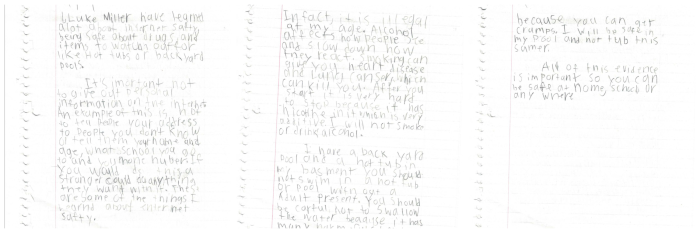 I, Luke Miller have learned
alot about internet safty
being safe about drugs, and
items to watch out for
like hot tubs or back yard
pools.
It's importnt not
to give out personal
information on the
An example of this is not
to tell people your address
to people you don't know
or tell them your name and
age, what school you go
to and phone
you would do this a
stranger could do anything
they want with it. These
are some of the things I
learned about internet
safty.
In fact, it is illegal
at my age. Alcohol
affects how people see
and slow down how
they react. Smoking can
give you heart disease
and lung cancer which
can kill you. After you
start it is very hard
to stop because it has
nicotine in it which is very
additive. I will not smoke
or drink alcohol.
I have a back yard
pool and a hot tub in
my basment you should
not swim in a hot tub
or pool with out a
adult present. You should
be carful not to swallow
the water because it has
many
because you can get
cramps. I will be safe in
my pool and hot tub this
samer.
All of this evidence
is important so you can
be safe at home, school or
any where